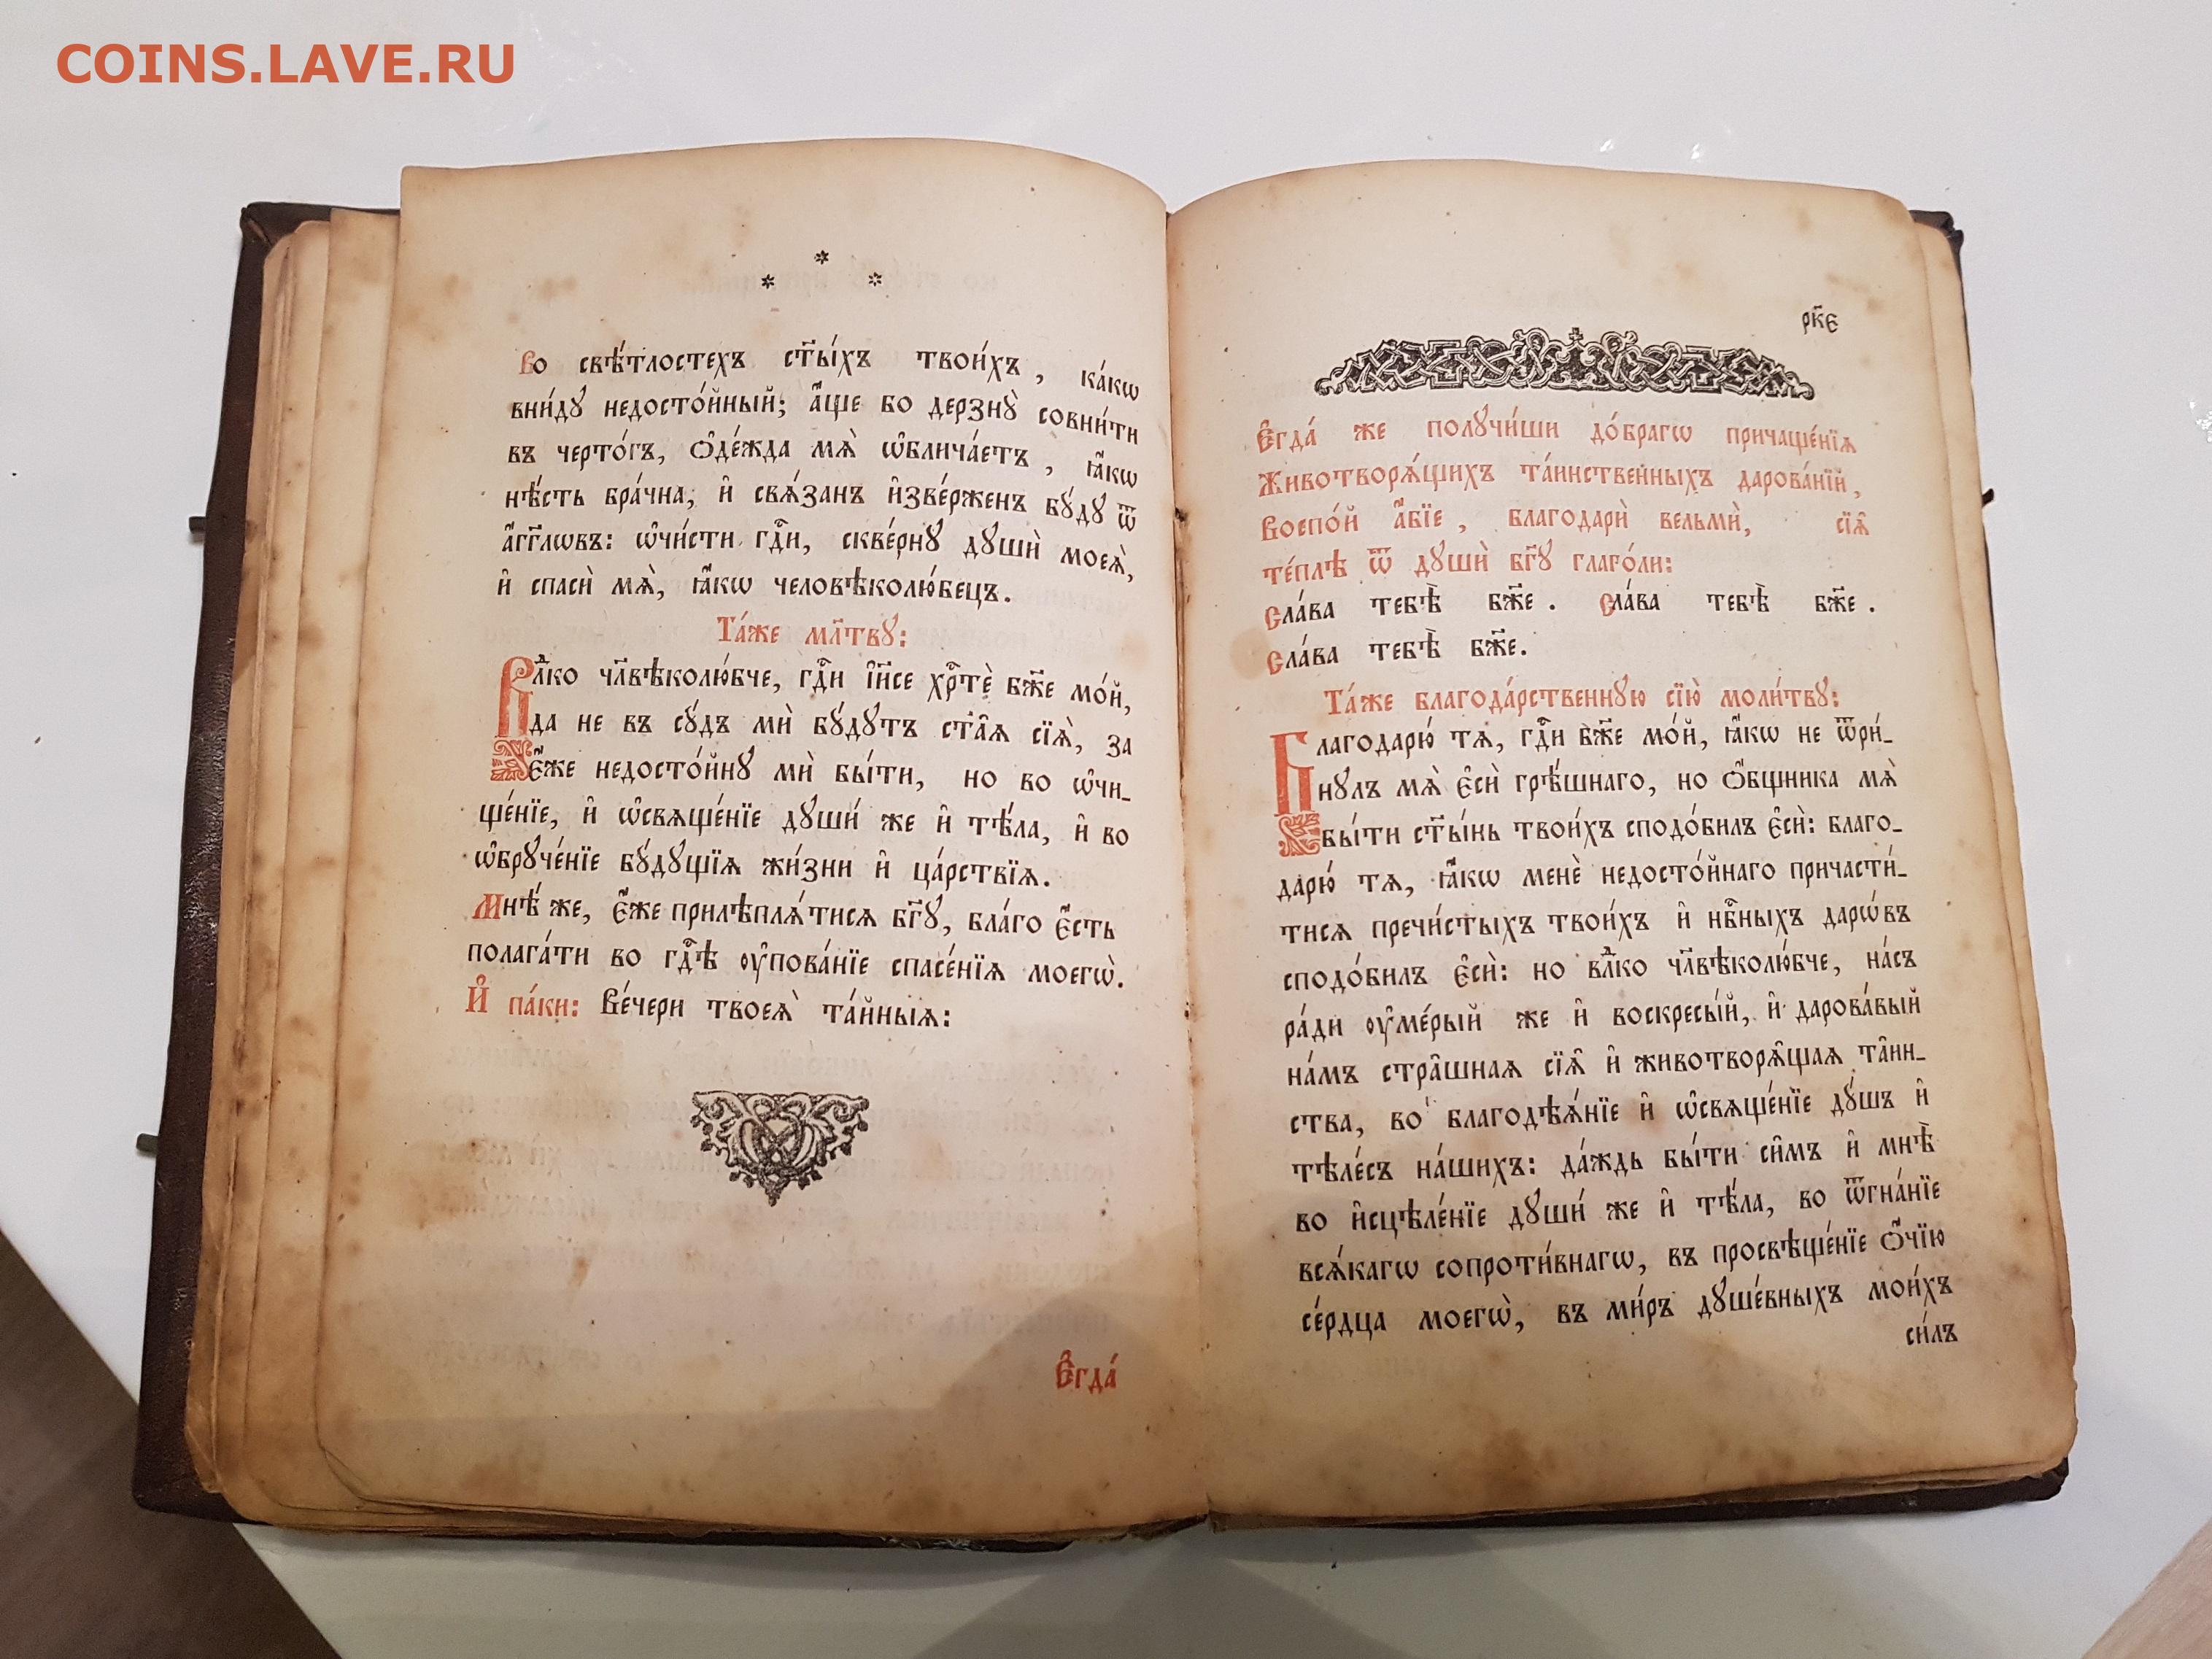 COINS.LAVE.RU
* * *
Во свѣ́тлостехъ ст҃ы́хъ твои́хъ, ка́кѡ
вни́дꙋ недосто́йный; а҆́ще бо дерзнꙋ̀ совни́ти
въ черто́гъ, ѻ҆де́жда мѧ̀ ѡ҆блича́етъ, ꙗ҆́кѡ
нѣ́сть бра́чна, и҆ свѧ́занъ и҆зве́рженъ бꙋ́дꙋ ѿ
а҆́гг҃лѡвъ: ѡ҆чи́сти гдⷭ҇и, скве́рнꙋ дꙋшѝ моеѧ̀,
и҆ спасѝ мѧ̀, ꙗ҆́кѡ человѣколю́бецъ.
Та́же мл҃твꙋ:
Влⷣко чл҃вѣколю́бче, гдⷭ҇и і҆и҃се хрⷭ҇тѐ бж҃е мо́й,
да не въ сꙋ́дъ мѝ бꙋ́дꙋтъ ст҃а̑ѧ сїѧ̀, за
є҆́же недосто́йнꙋ мѝ бы́ти, но во ѡ҆чи_
ще́нїе, и҆ ѡ҆свѧще́нїе дꙋши́ же и҆ тѣ́ла, и҆ во
ѡ҆брꙋче́нїе бꙋ́дꙋщїѧ жи́зни и҆ ца́рствїѧ.
Мнѣ́ же, є҆́же прилѣплѧ́тисѧ бг҃ꙋ, бла́го є҆́сть
полага́ти во гдⷭ҇ѣ ᲂу҆пова́нїе спасе́нїѧ моегѡ̀.
И҆ па́ки: Ве́чери твоеѧ̀ та́йныѧ:
Є҆гда́
рк҃є
Є҆гда́ же полꙋчи́ши до́брагѡ причаще́нїѧ
Животворѧ́щихъ та́инственныхъ дарова́нїй,
Воспо́й а҆́бїе, благодарѝ вельмѝ, сїѧ̑
те́плѣ ѿ дꙋшѝ бг҃ꙋ глаго́ли:
Сла́ва тебѣ̀ бж҃е. Сла́ва тебѣ̀ бж҃е.
Сла́ва тебѣ̀ бж҃е.
Та́же благода́рственнꙋю сїю̀ моли́твꙋ:
Благодарю́ тѧ, гдⷭ҇и бж҃е мо́й, ꙗ҆́кѡ не ѿри́_
нꙋлъ мѧ̀ є҆сѝ грѣ́шнаго, но ѻ҆́бщника мѧ̀
бы́ти ст҃ы́нь твои́хъ сподо́билъ є҆сѝ: благо_
дарю́ тѧ, ꙗ҆́кѡ менѐ недосто́йнаго причасти́_
тисѧ пречи́стыхъ твои́хъ и҆ нбⷭ҇ныхъ дарѡ́въ
сподо́билъ є҆сѝ: но влⷣко чл҃вѣколю́бче, на́съ
ра́ди ᲂу҆ме́рый же и҆ воскресы́й, и҆ дарова́вый
на́мъ стра̑шнаѧ сїѧ̑ и҆ животворѧ̑щаѧ та̑ин_
ства, во благодѣѧ́нїе и҆ ѡ҆свѧще́нїе дꙋ́шъ и҆
тѣле́съ на́шихъ: да́ждь бы́ти си̑мъ и҆ мнѣ̀
во и҆сцѣле́нїе дꙋши́ же и҆ тѣ́ла, во ѿгна́нїе
всѧ́кагѡ сопроти́внагѡ, въ просвѣще́нїе ѻ҆́чїю
се́рдца моегѡ̀, въ ми́ръ дꙋше́вныхъ мои́хъ
си́лъ